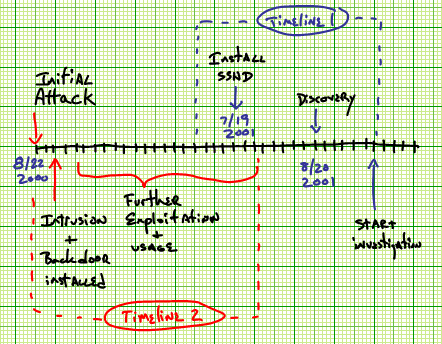 TIMELINE 1
INITIAL
Attack
INSTALL
SSHD
7/19
2001
DISCOVERY
8/22
2000
8/20
2001
INTRUSION
+
Backdoor
installed
Further
Exploitation
+
USAGE
START
investigation
TIMELINE 2